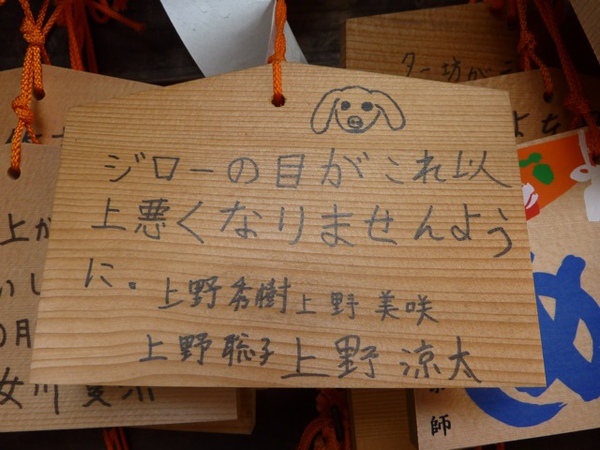 ジローの目がこれ以
上悪くなりませんよう
に。
上野秀樹上野美咲
上野聡子上野涼太
ター坊が
よな
上が
いし
の月
女川
め
師